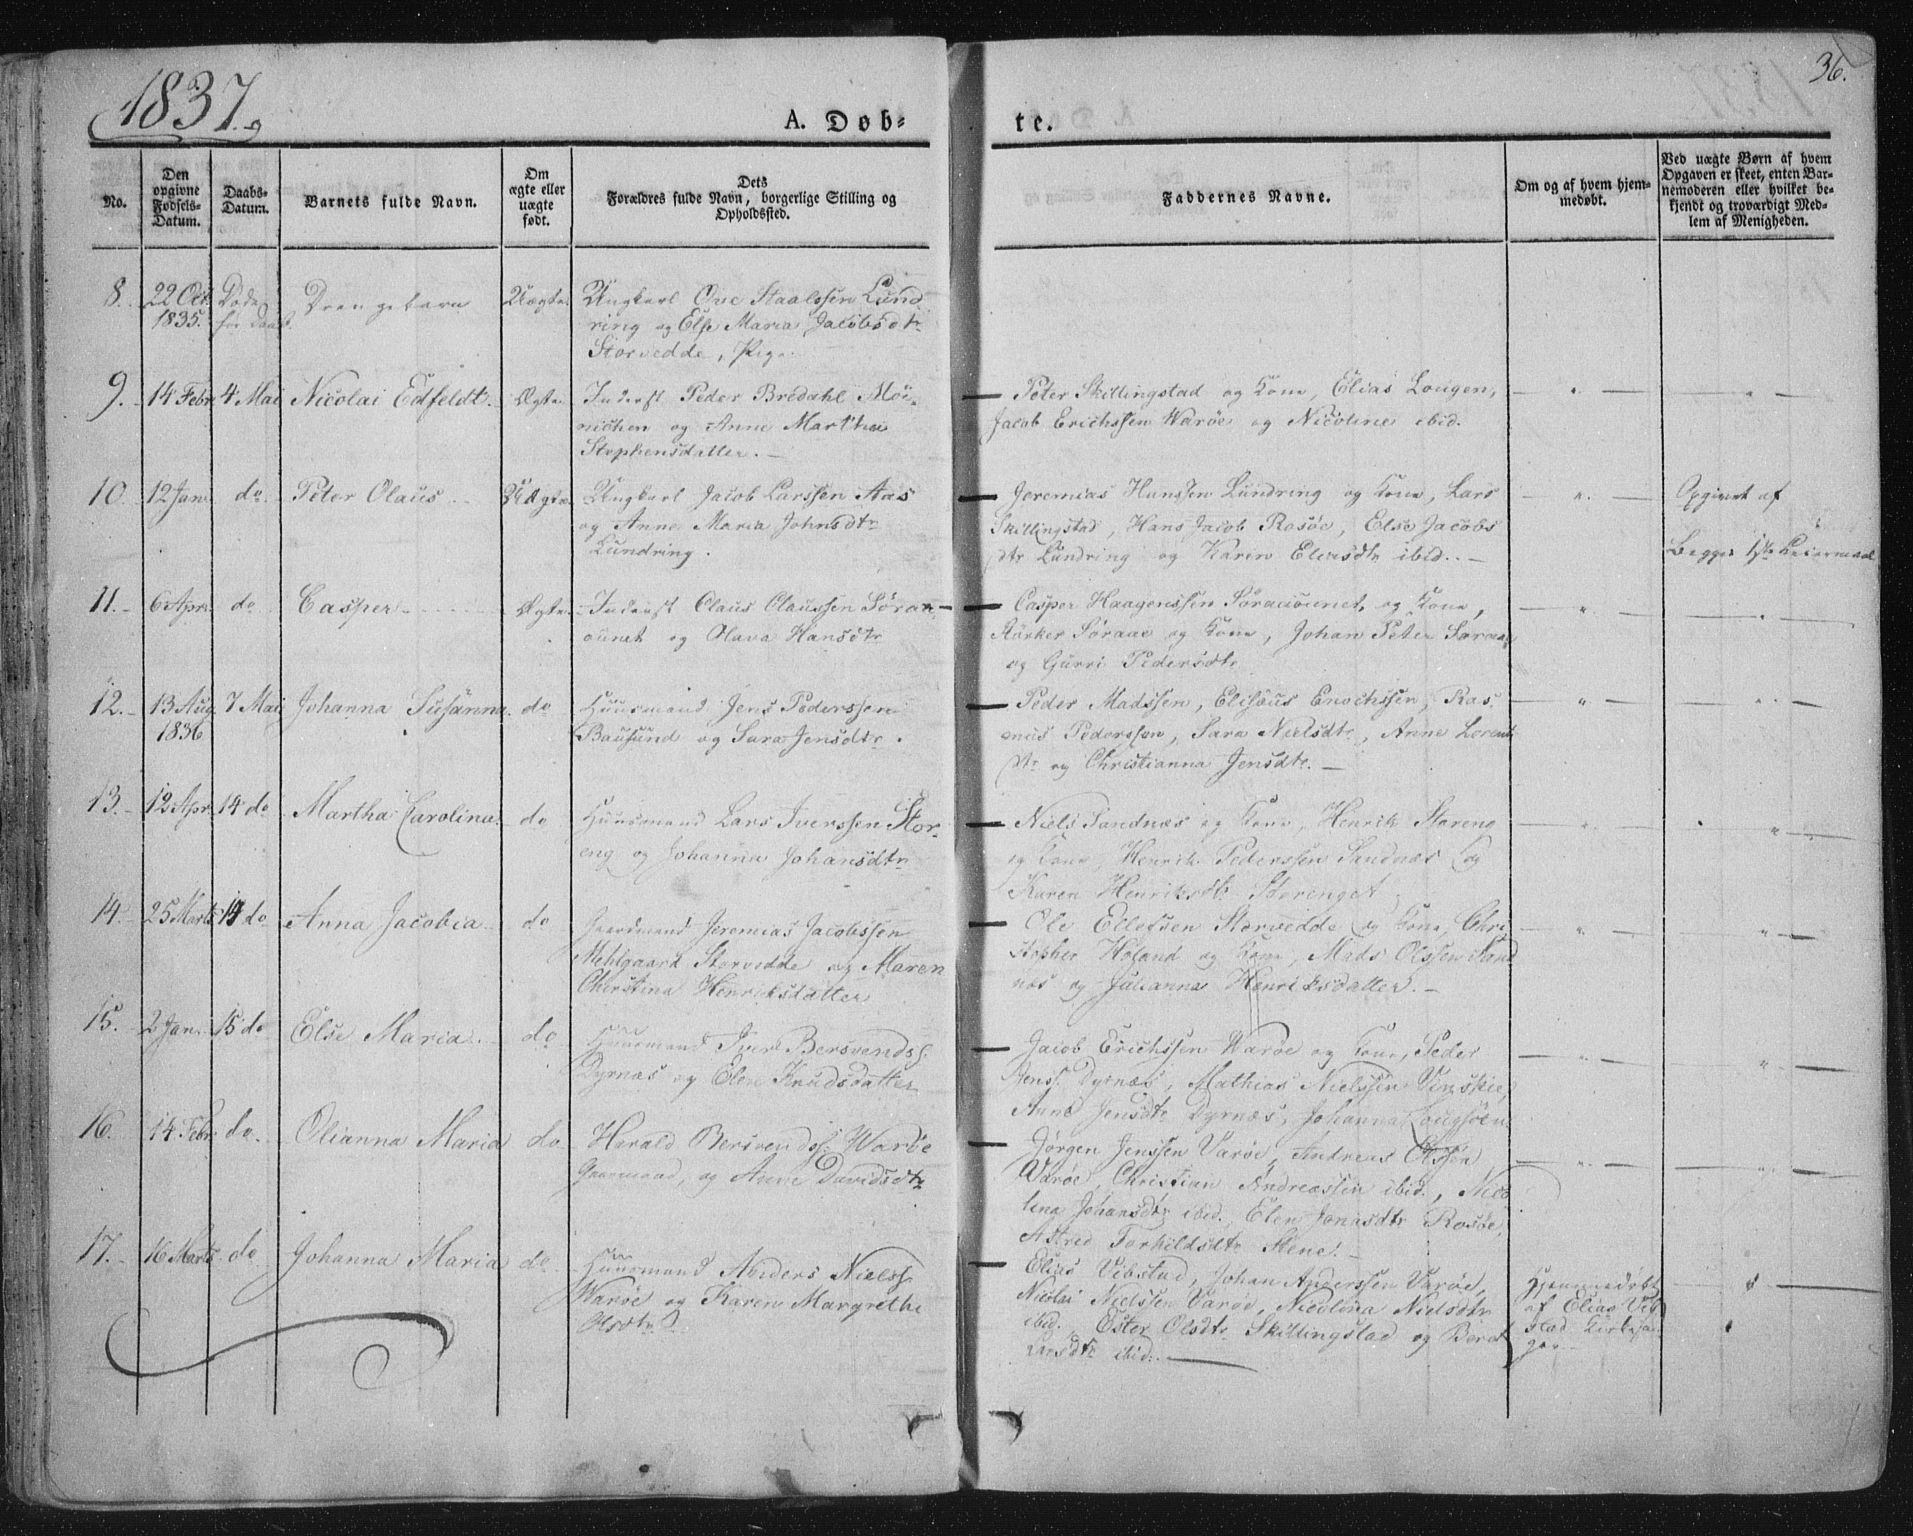 1837.
36.
A. Døb-
te.
No.
Den opgivne Fødsels-Datum.
Daabs-Datum.
Barnets fulde Navn.
Om ægte eller uægte født.
Dets Forældres fulde Navn, borgerlige Stilling og Opholdssted.
Faddernes Navne.
Om og af hvem hjem-medøbt.
Ved uægte Børn af hvem Opgaven er skeet, enten Bar-nemoderen eller hvilket be-kjendt og troværdigt Med-lem af Menigheden.
8. 22 Oct. 1835. Døde før Daab. Drengebarn Uægte.
Ungkarl Ove Staalssen Lund
ring og Else Maria Jacobsdtr
Storvedde, Pige
9. 14 Febr. 4 Mai Nicolai Edfeldt. Ægte.
Inderst Peder Bredahl Møi-
nichen og Anne Martha
Stephensdatter. —
— Peter Skillingstad og Kone, Elias Lougen,
Jacob Erichssen Warøe og Nicoline ibid.
10. 12 Jan. do. Peter Olaus Uægte
Ungkarl Jacob Larssen Aas
og Anne Maria Johnsdtr
Lundring.
— Jeremias Hanssen Lundring og Kone, Lars
Skillingstad, Hans Jacob Rosøe, Else Jacobs
dtr Lundring og Karen Elersdtr ibid. —
Opgivet af
Begges 1ste Leiermaal
11. 6 Apr. do Casper Ægte
Inderst Claus Claussen Søraa-
ounet og Olava Hansdtr
— Casper Haagenssen Søraaounet, og Kone,
Rörker Søraae og Kone, Johan Peter Søraae
og Gurri Pedersdtr
12. 13 Aug. 1836 7 Mai Johanna Susanna. do
Huusmand Jens Pederssen
Bausund og Sara Jensdtr.
— Peder Madssen, Elisæus Enochssen, Ras
mus Pederssen, Sara Nielsdtr, Anne Lorents
dtr og Christianna Jensdtr. —
13. 12 Apr. 14 do Martha Carolina. do
Huusmand Lars Iverssen Stor-
eng og Johanna Johansdtr
— Niels Sandnæs og Kone, Henrik Storeng
og Kone, Henrik Pederssen Sandnæs og
Karen Henriksdtr Storenget
14. 25 Marts 14 do Anna Jacobia do
Gaardmand Jeremias Jacobssen
Mehlgaard Storvedde og Maren
Christina Henriksdatter
— Ole Ellefsen Storvedde og Kone, Chri
stopher Høland og Kone, Mads Olssen Sand
næs og Julianna Henriksdatter. —
15. 2 Jan. 15 do Else Maria. do
Huusmand Iver Bersvends.
Dyrnæs og Elen Knudsdatter
— Jacob Erichssen Warøe og Kone, Peder
Jenss. Dyrnæs, Mathias Nielssen Vinskie,
Anne Jensdtr Dyrnæs, Johanna Lougsøen
16. 14 Febr. do. Olianna Maria do
Harald Bersvendss. Warøe
Gaarmand, og Anne Davidsdtr
— Jørgen Jenssen Varøe, Andreas Olssen
Varøe, Christian Andreassen ibid., Nico
lina Johansdtr ibid., Elen Jonasdtr Rosøe,
Astrid Torkildsdtr Stene. —
17. 16 Marts do Johanna Maria do
Huusmand Anders Nielss.
Warøe og Karen Margrethe
Olsdtr
— Elias Vibstad, Johan Anderssen Varøe,
Nicolai Nielssen Varøe, Nicolina Nielsdtr
ibid., Ester Olsdtr Skillingstad og Beret
ibid. —
Hjemmedøbt
af Elias Vib
stad Kirkesan
ger